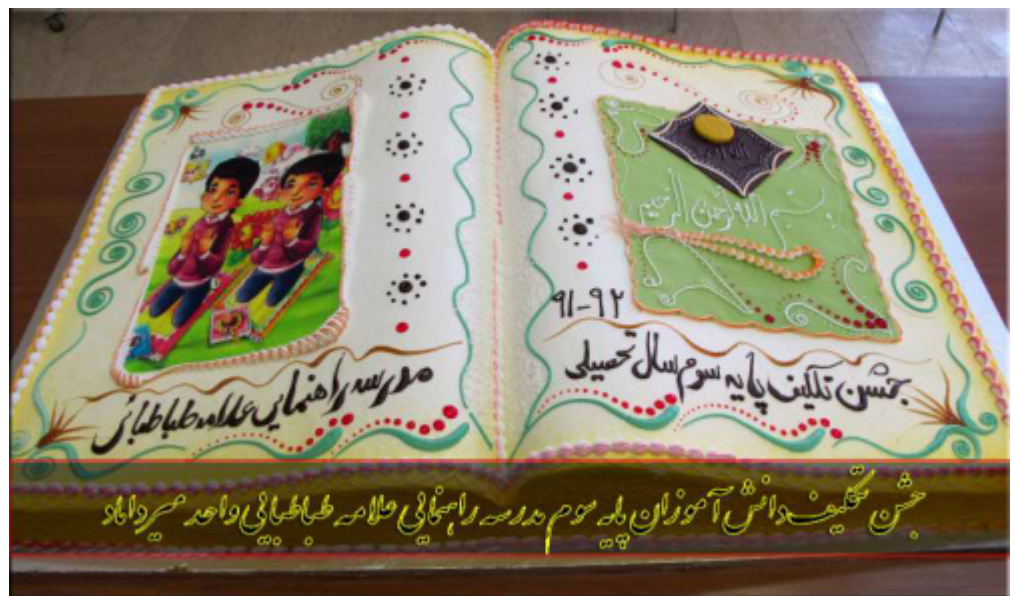 بسم الله الرحمن الرحیم
۹۱-۹۲
جشن تکلیف پایه سوم سال تحصیلی
مدرسه راهنمایی علامه طباطبائی
جشن تکلیف دانش آموزان پایه سوم مدرسه راهنمایی علامه طباطبایی واحد میرداماد